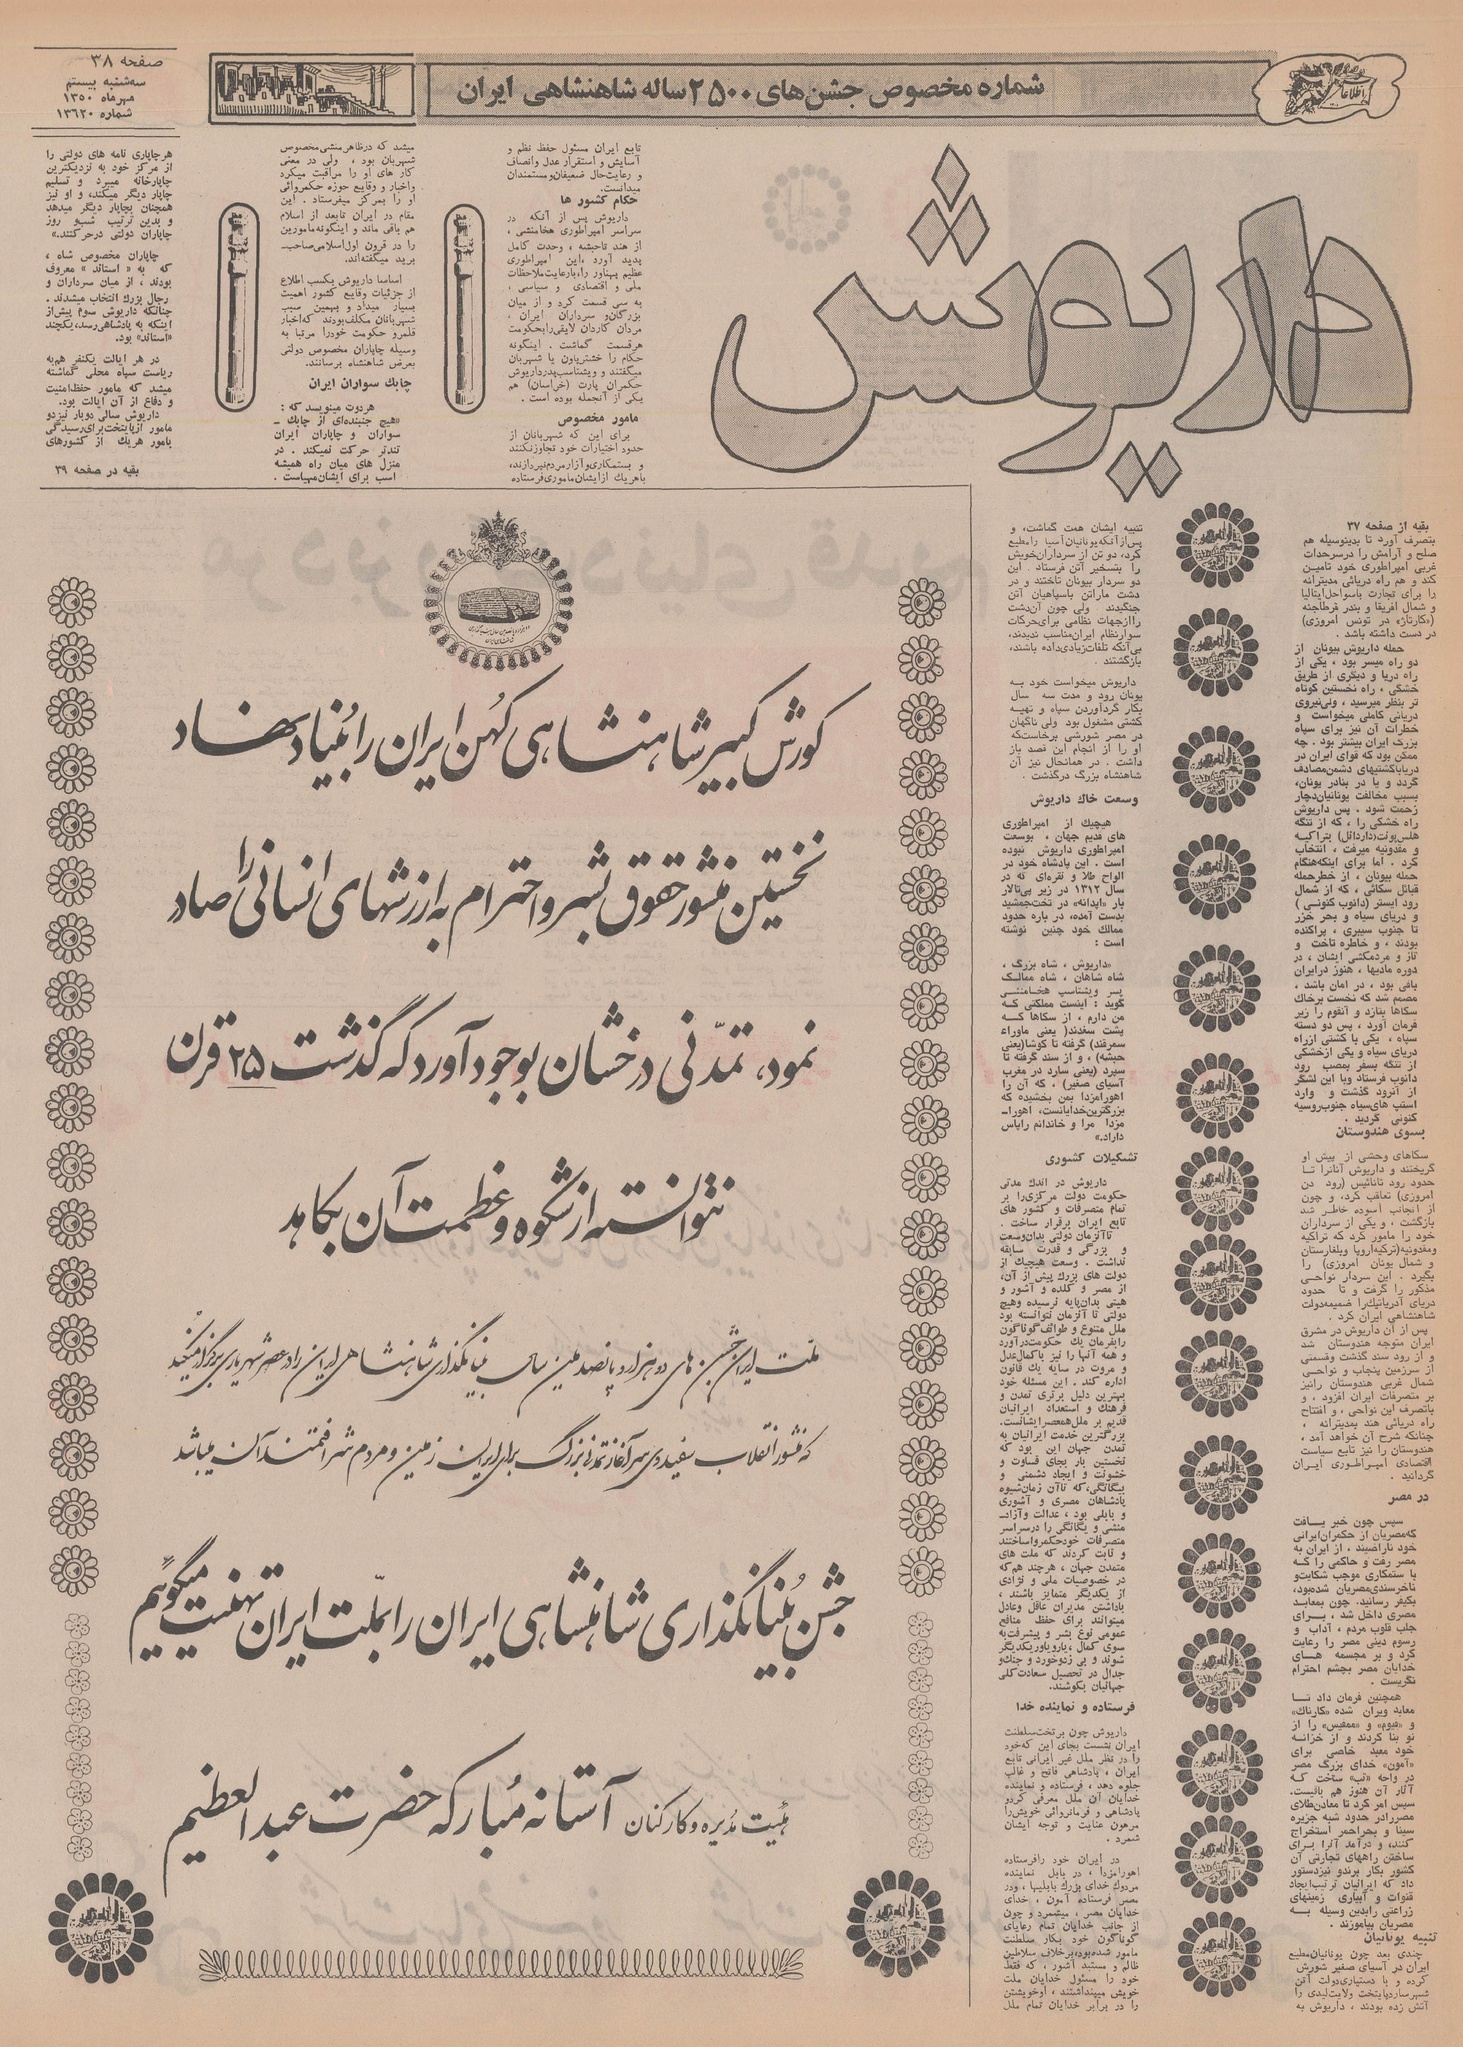 صفحه ۳۸
سه‌شنبه بیستم
مهرماه ۱۳۵۰
شماره ۱۳۶۲۰
شماره مخصوص جشن‌های ۲۵۰۰ ساله شاهنشاهی ایران
اطلاعات
داریوش
بقیه از صفحه ۳۷
بتصرف آورد تا بدینوسیله هم
صلح و آرامش را درسرحدات
غربی امپراطوری خود تامین
کند و هم راه دریائی مدیترانه
را برای تجارت باسواحل‌ایتالیا
و شمال افریقا و بندر قرطاجنه
(«کارتاژ» در تونس امروزی)
در دست داشته باشد .
حمله داریوش بیونان از
دو راه میسر بود ، یکی از
راه دریا و دیگری از طریق
خشکی ، راه نخستین کوتاه
تر بنظر میرسید ، ولی‌نیروی
دریائی کاملی میخواست و
خطرات آن نیز برای سپاه
بزرگ ایران بیشتر بود . چه
ممکن بود که قوای ایران در
دریاباکشتیهای دشمن‌مصادف
گردد و یا در بنادر یونان،
بسبب مخالفت یونانیان‌دچار
زحمت شود . پس داریوش
راه خشکی را ، که از تنگه
هلس‌پونت(داردانل) بتراکیه
و مقدونیه میرفت ، انتخاب
کرد . اما برای اینکه‌هنگام
حمله بیونان ، از خطرحمله
قبائل سکائی ، که از شمال
رود ایستر (دانوب کنونی )
و دریای سیاه و بحر خزر
تا جنوب سیبری ، پراکنده
بودند ، و خاطره تاخت و
تاز و مردمکشی ایشان ، در
دوره مادیها ، هنوز درایران
باقی بود ، در امان باشد ،
مصمم شد که نخست برخاک
سکاها بتازد و آنقوم را زیر
فرمان آورد ، پس دو دسته
سپاه ، یکی با کشتی ازراه
دریای سیاه و یکی ازخشکی
از تنگه بسفر بمصب رود
دانوب فرستاد وبا این لشگر
از آنرود گذشت و وارد
استپ های‌سیاه جنوب‌روسیه
کنونی گردید .
بسوی هندوستان
سکاهای وحشی از پیش او
گریختند و داریوش آنانرا تا
حدود رود تانائیس (رود دن
امروزی) تعاقب کرد، و چون
از آنجانب آسوده خاطر شد
بازگشت ، و یکی از سرداران
خود را مامور کرد که تراکیه
ومقدونیه(ترکیه‌اروپا وبلغارستان
و شمال یونان امروزی) را
بگیرد . این سردار نواحی
مذکور را گرفت و تا حدود
دریای آدریاتیک‌را ضمیمه‌دولت
شاهنشاهی ایران کرد .
پس از آن داریوش در مشرق
ایران متوجه هندوستان شد
و از رود سند گذشت وقسمتی
از سرزمین پنجاب و نواحی
شمال غربی هندوستان رانیز
بر متصرفات ایران افزود ، و
باتصرف این نواحی ، و افتتاح
راه دریائی هند بمدیترانه ،
چنانکه شرح آن خواهد آمد ،
هندوستان را نیز تابع سیاست
اقتصادی امپراطوری ایران
گردانید .
در مصر
سپس چون خبر یافت
که‌مصریان از حکمران‌ایرانی
خود ناراضیند ، از ایران به
مصر رفت و حاکمی را که
با ستمکاری موجب شکایت‌و
ناخرسندی‌مصریان شده‌بود،
بکیفر رسانید، چون بمعابد
مصری داخل شد ، برای
جلب قلوب مردم ، آداب و
رسوم دینی مصر را رعایت
کرد و بر مجسمه های
خدایان مصر بچشم احترام
نگریست .
همچنین فرمان داد تا
معابد ویران شده «کارناک»
و «فیوم» و «ممفیس» را از
نو بنا کردند و از خزانه
خود معبد خاصی برای
«آمون» خدای بزرگ مصر
در واحه «تب» ساخت که
آثار آن هنوز هم باقیست.
سپس امر کرد تا معادن‌طلای
مصررادر حدود شبه جزیره
سینا و بحراحمر استخراج
کنند، و درآمد آنرا برای
ساختن راههای تجارتی آن
کشور بکار برندو نیزدستور
داد که ایرانیان ترتیب‌ایجاد
قنوات و آبیاری زمینهای
زراعتی رابدین وسیله به
مصریان بیاموزند .
تنبیه یونانیان
چندی بعد چون یونانیان‌مطیع
ایران در آسیای صغیر شورش
کرده و با دستیاری‌دولت آتن
شهرساردپایتخت ولایت‌لیدی را
آتش زده بودند ، داریوش به
تنبیه ایشان همت گماشت، و
پس‌ازآنکه‌یونانیان‌آسیا رامطیع
کرد، دو تن از سرداران‌خویش
را بتسخیر آتن فرستاد . این
دو سردار بیونان تاختند و در
دشت ماراتن باسپاهیان آتن
جنگیدند . ولی چون آن‌دشت
راازجهات نظامی برای‌حرکات
سوارنظام ایران‌مناسب ندیدند،
بی‌آنکه تلفات‌زیادی‌داده باشند،
بازگشتند .
داریوش میخواست خود به
یونان رود و مدت سه سال
بکار گردآوردن سپاه و تهیه
کشتی مشغول بود . ولی ناگهان
در مصر شورشی برخاست‌که
او را از انجام این قصد باز
داشت . در همانحال نیز آن
شاهنشاه بزرگ درگذشت .
وسعت خاک داریوش
هیچیک از امپراطوری
های قدیم جهان ، بوسعت
امپراطوری داریوش نبوده
است . این پادشاه خود در
الواح طلا و نقره‌ای که در
سال ۱۳۱۲ در زیر پی‌تالار
بار «اپدانه» در تخت‌جمشید
بدست آمده، در باره حدود
ممالک خود چنین نوشته
است :
«داریوش ، شاه بزرگ ،
شاه شاهان ، شاه ممالک
پسر ویشتاسپ هخامنشی
گوید : اینست مملکتی که
من دارم ، از سکاها که
پشت سغدند( یعنی ماوراء
سمرقند) گرفته تا کوشا(یعنی
حبشه) ، و از سند گرفته تا
سپرد (یعنی سارد در مغرب
آسیای صغیر) ، که آن را
اهورامزدا بمن بخشیده که
بزرگترین‌خدایانست، اهورا-
مزدا مرا و خاندانم راپاس
داراد.»
تشکیلات کشوری
داریوش در اندک مدتی
حکومت دولت مرکزی‌را بر
تمام متصرفات و کشور های
تابع ایران برقرار ساخت .
تاآنزمان دولتی بدان‌وسعت
و بزرگی و قدرت سابقه
نداشت . وسعت هیچیک از
دولت های بزرگ پیش از آن،
از مصر و کلده و آشور و
هیتی بدان‌پایه نرسیده وهیچ
دولتی تا آنزمان نتوانسته بود
ملل متنوع و طوائف‌گوناگون
رابفرمان یک حکومت‌درآورد
و همه آنها را نیز باکمال‌عدل
و مروت در سایه یک قانون
اداره کند . این مسئله خود
بهترین دلیل برتری تمدن و
فرهنگ و استعداد ایرانیان
قدیم بر ملل‌همعصرایشانست.
بزرگترین خدمت ایرانیان به
تمدن جهان این بود که
نخستین بار بجای قساوت و
خشونت و ایجاد دشمنی و
بیگانگی،که تاآن زمان‌شیوه
پادشاهان مصری و آشوری
و بابلی بود ، عدالت وآزاد-
منشی و یگانگی را درسراسر
متصرفات خودحکمرواساختند
و ثابت کردند که ملت های
متمدن جهان ، هرچند هم‌که
در خصوصیات ملی و نژادی
از یکدیگر متمایز باشند ،
باداشتن مدیران عاقل وعادل
میتوانند برای حفظ منافع
عمومی نوع بشر و پیشرفت‌به
سوی کمال ،یارویاوریکدیگر
شوند و بی زدوخورد و جنگ‌و
جدال در تحصیل سعادت‌کلی
جهانیان بکوشند.
فرستاده و نماینده خدا
داریوش چون برتخت‌سلطنت
ایران نشست بجای این که‌خود
را در نظر ملل غیر ایرانی تابع
ایران ، پادشاهی فاتح و غالب
جلوه دهد ، فرستاده و نماینده
خدایان آن ملل معرفی کردو
پادشاهی و فرمانروائی خویش‌را
مرهون عنایت و توجه ایشان
شمرد .
در ایران خود رافرستاده
اهورامزدا ، در بابل نماینده
مردوک خدای بزرگ بابلیها ، ودر
مصر فرستاده آمون ، خدای
خدایان مصر ، میشمرد و چون
از جانب خدایان تمام رعایای
گوناگون خود بکار سلطنت
مامور شده‌بود،برخلاف سلاطین
ظالم و مستبد آشور ، که فقط
خود را مسئول خدایان ملت
خویش میپنداشتند ، اوخویشتن
را در برابر خدایان تمام ملل
تابع ایران مسئول حفظ نظم و
آسایش و استقرار عدل وانصاف
و رعایت‌حال ضعیفان‌ومستمندان
میدانست.
حکام کشور ها
داریوش پس از آنکه در
سراسر امپراطوری هخامنشی ،
از هند تاحبشه ، وحدت کامل
پدید آورد ،این امپراطوری
عظیم پهناور را،بارعایت‌ملاحظات
ملی و اقتصادی و سیاسی ،
به سی قسمت کرد و از میان
بزرگان‌و سرداران ایران ،
مردان کاردان لایقی‌رابحکومت
هرقسمت گماشت . اینگونه
حکام را خشتریاون یا شهربان
میگفتند و ویشتاسب‌پدرداریوش
حکمران پارت (خراسان) هم
یکی از آنجمله بوده است .
مامور مخصوص
برای این که شهربانان از
حدود اختیارات خود تجاوزنکنند
و بستمکاری‌وآزارمردم‌نپردازند،
باهریک ازایشان ماموری‌فرستاده
میشد که درظاهرمنشی‌مخصوص
شهربان بود ، ولی در معنی
کار های او را مراقبت میکرد
واخبار و وقایع حوزه حکمروائی
او را بمرکز میفرستاد . این
مقام در ایران تابعد از اسلام
هم باقی ماند و اینگونه‌مامورین
را در قرون اول‌اسلامی‌صاحب-
برید میگفته‌اند.
اساسا داریوش بکسب اطلاع
از جزئیات وقایع کشور اهمیت
بسیار میداد و بهمین سبب
شهربانان مکلف‌بودند که‌اخبار
قلمرو حکومت خودرا مرتبا به
وسیله چاپاران مخصوص دولتی
بعرض شاهنشاه برسانند.
چابک سواران ایران
هردوت مینویسد که :
«هیچ جنبنده‌ای از چابک -
سواران و چاپاران ایران
تندتر حرکت نمیکند . در
منزل های میان راه همیشه
اسب برای ایشان‌مهیاست .
هرچاپاری نامه های دولتی را
از مرکز خود به نزدیکترین
چاپارخانه میبرد و تسلیم
چاپار دیگر میکند، و او نیز
همچنان بچاپار دیگر میدهد
و بدین ترتیب شب‌و روز
چاپاران دولتی درحرکتند.»
چاپاران مخصوص شاه ،
که به « استاند » معروف
بودند ، از میان سرداران و
رجال بزرگ انتخاب میشدند .
چنانکه داریوش سوم پیش‌از
اینکه به پادشاهی‌رسد،یکچند
«استاند» بود.
در هر ایالت یکنفر هم‌به
ریاست سپاه محلی گماشته
میشد که مامور حفظ‌امنیت
و دفاع از آن ایالت بود.
داریوش سالی دوبار نیزدو
مامور ازپایتخت‌برای‌رسیدگی
بامور هریک از کشورهای
بقیه در صفحه ۳۹
دو هزار و پانصدمین سال بنیانگذاری
شاهنشاهی ایران
کورش کبیر شاهنشاهی کهن ایران را بُنیاد نهاد
نخستین منشور حقوق بشر و احترام به ارزشهای انسانی را صادر
نمود، تمدّنی درخشان بوجود آورد که گذشت ۲۵ قرن
نتوانسته از شکوه و عظمت آن بکاهد
ملت ایران جشن های دوهزار و پانصدمین سال بنیانگذاری شاهنشاهی ایران را در عصر شهریاری برگزار میکند
که منشور انقلاب سفید وی سرآغاز تمدنی بزرگ برای ایران زمین و مردم شرافتمند آن میباشد
جشن بُنیانگذاری شاهنشاهی ایران را بملّت ایران تهنیت میگوئیم
هیئت مدیره و کارکنان آستانه مُبارکه حضرت عبدالعظیم